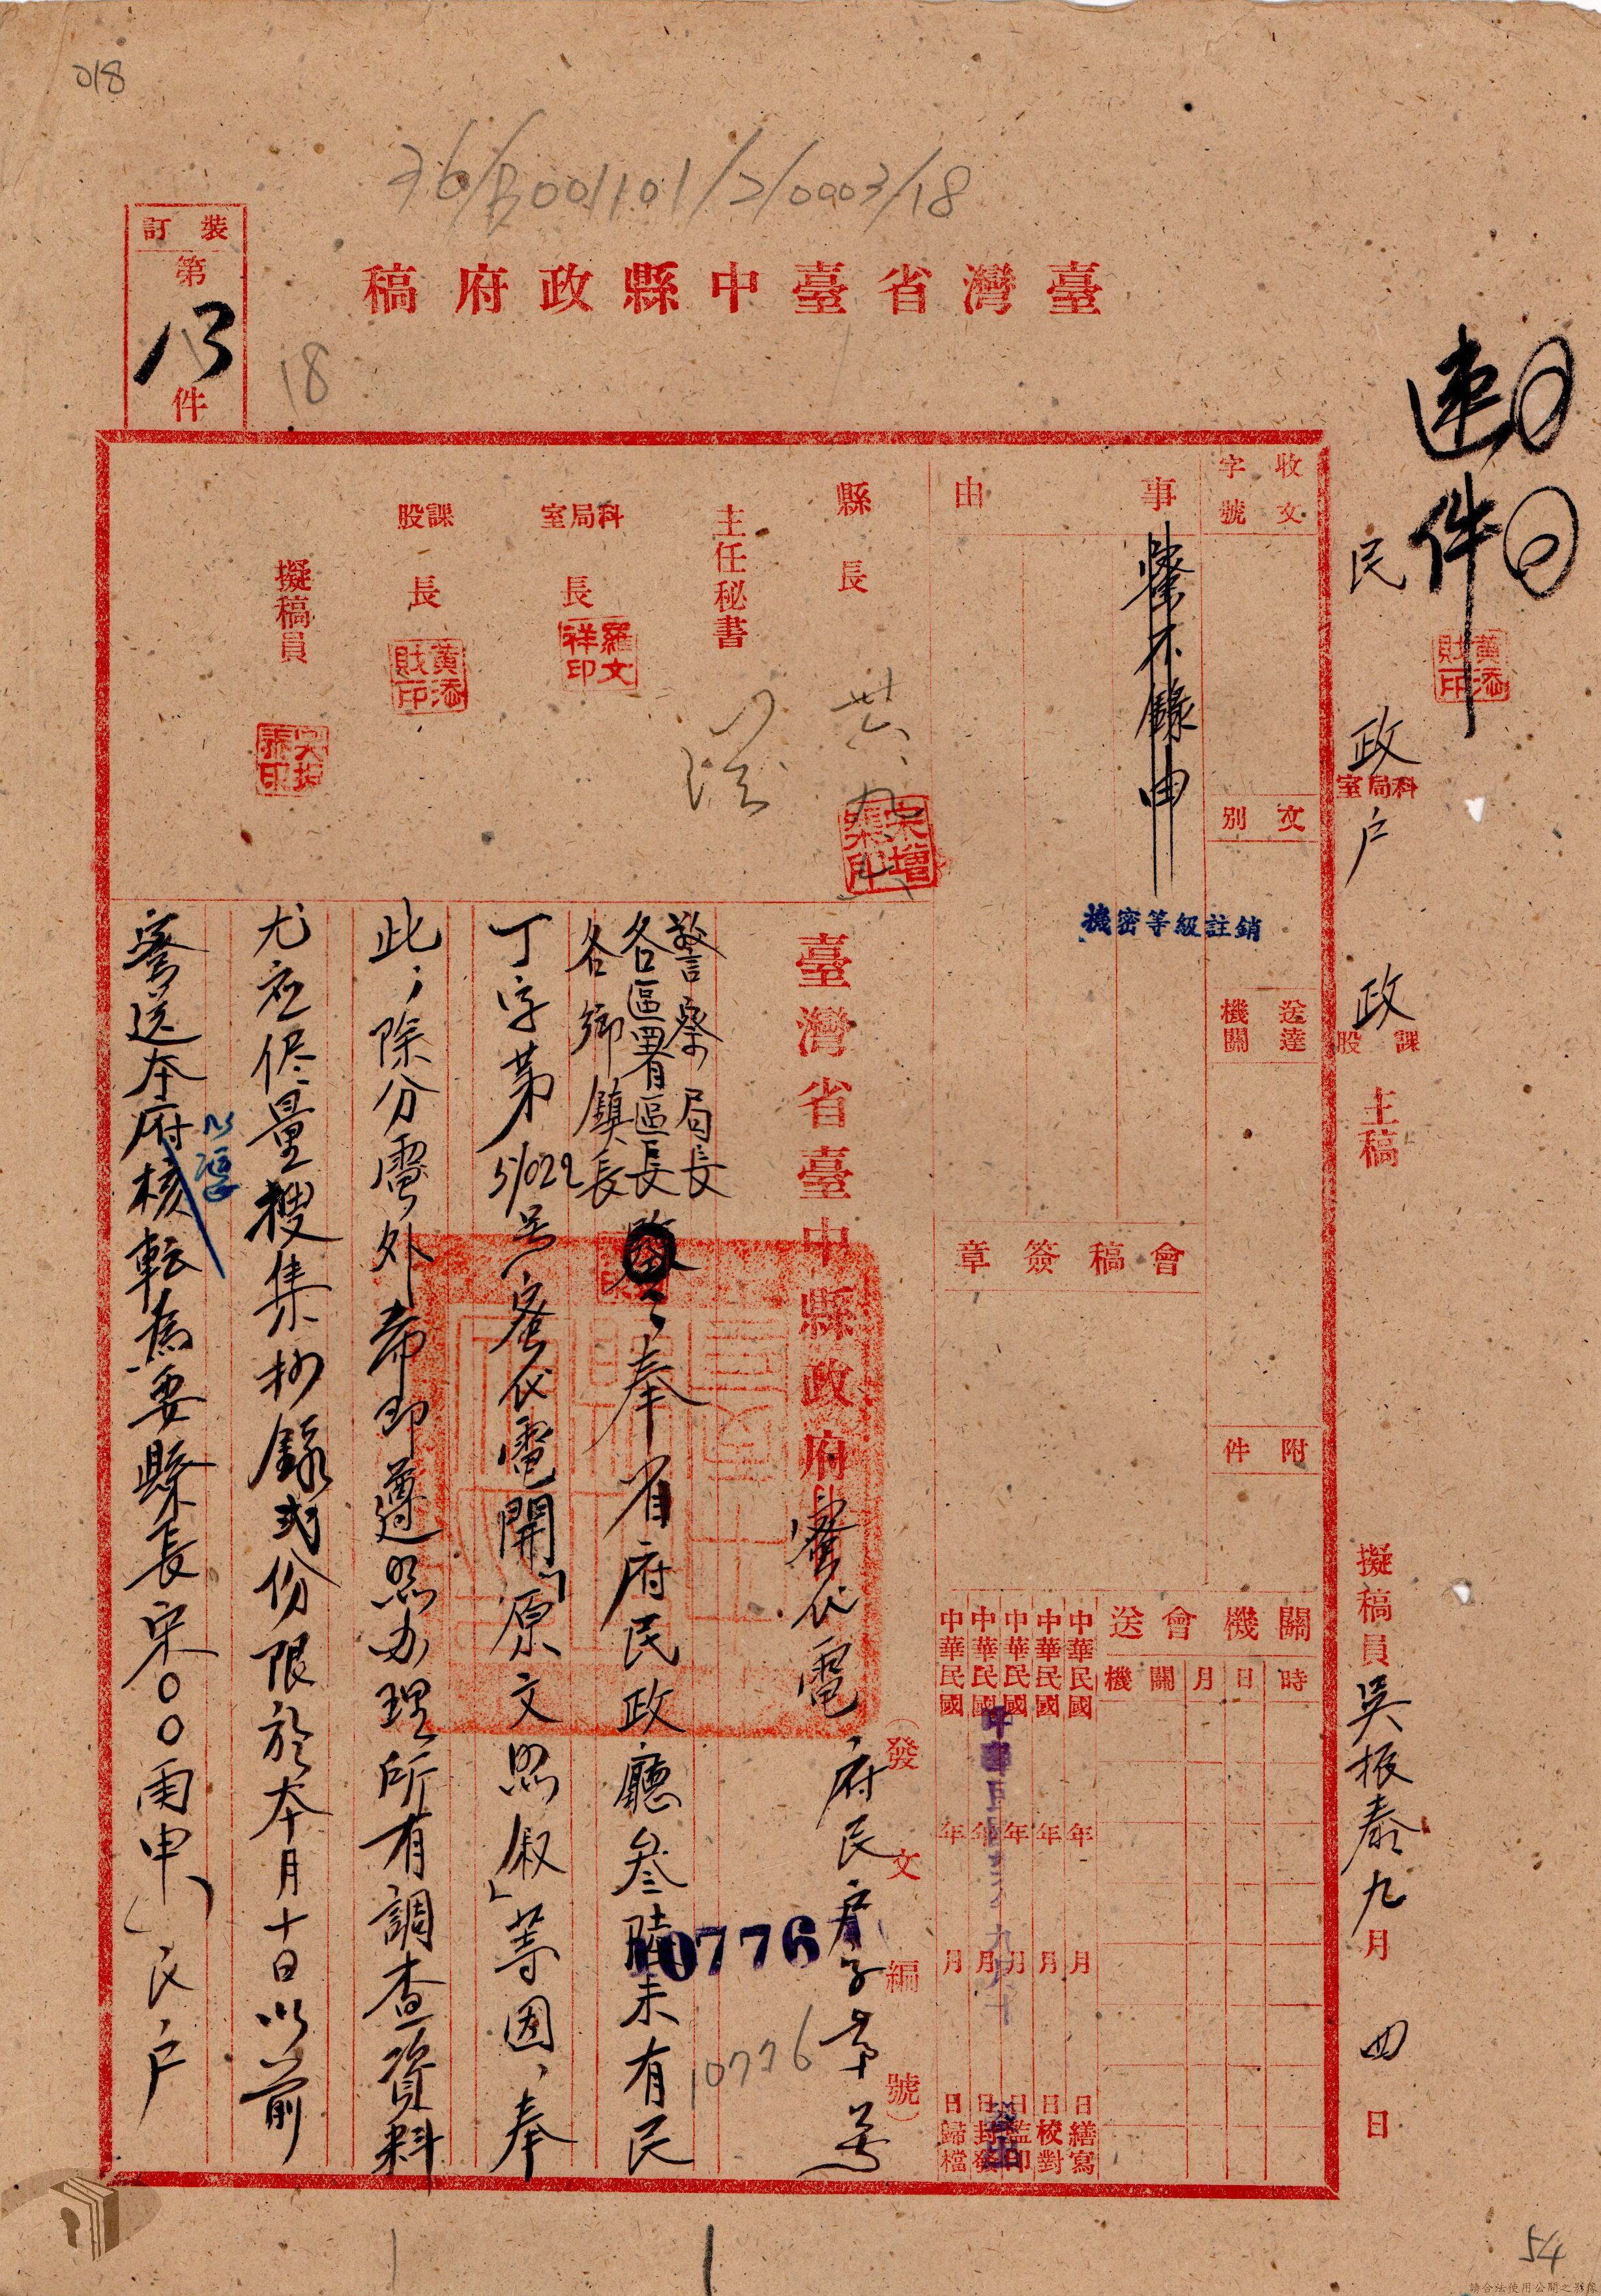 018
36/B001101/2/0003/18
裝訂
第
13
件
18
臺灣省臺中縣政府稿
速件
民政科局室戶政課股主稿
擬稿員吳振泰九月四日
黃添財印
收文字號
文別
送達機關
附件
事由
密不錄由
機密等級註銷
會稿簽章
會送機關
機關
月
日
時
中華民國年月日繕寫
中華民國年月日校對
中華民國年月日監印
中華民國年月日封發
中華民國年月日歸檔
縣長
主任秘書
科局室長
羅文祥印
課股長
黃添財印
擬稿員
臺灣省臺中縣政府密代電
府民戶字第號
(發文編號)
10776
10776
警察局長
各區署區長
各鄉鎮長
奉省府民政廳叁陸未有民
丁字第51022号密代電開「原文照叙」等因、奉
此,除分電外希即遵照办理所有調查資料
尤应侭量搜集抄錄貳份限於本月十日以前
密送本府核転為要縣長宋〇〇(雨申)民戶
54
請合法使用公開之影像